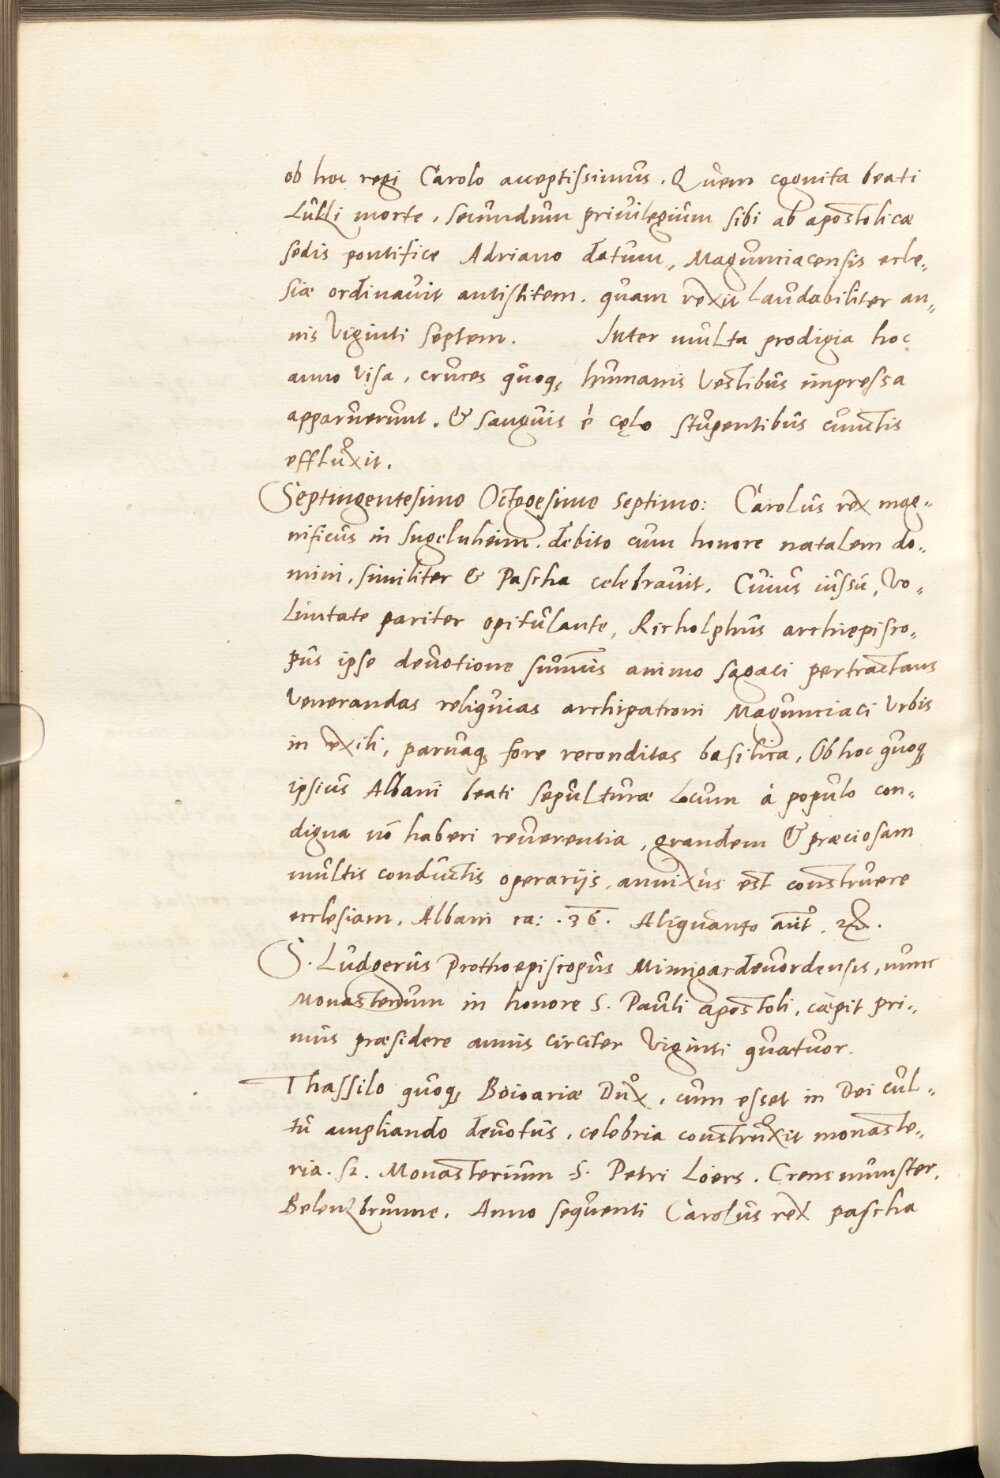 ob hoc regi Carolo acceptissimus. Quem cognita beati
Lulli morte, secundum priuilegium sibi ab apostolicæ
sedis pontifice Adriano datum, Magunciacensis eccle-
siæ ordinauit antistitem. quam rexit laudabiliter an-
nis viginti septem. Inter multa prodigia hoc
anno visa, cruces quoq; humanis vestibus impressa
apparuerunt. & sanguis è cęlo stupentibus cunctis
effluxit.
Septingentesimo Octogesimo septimo: Carolus rex mag-
nificus in Ingelnheim. debito cum honore natalem do-
mini, similiter & Pascha celebrauit. Cuius iussu, vo-
luntate pariter opitulante, Richolphus archiepisco-
pus ipse deuotione sum̄us animo sagaci pertractans
venerandas reliquias archipatroni Magunciaci vrbis
in exili, paruaq; fore reconditas basilica, Ob hoc quoq;
ipsius Albani beati sepulturæ locum à populo con-
digna nō haberi reuerentia, grandem & præciosam
multis conductis operarijs, annixus est construere
ecclesiam. Albani ca: .36. Aliquanto aut̄.
S. Ludgerus Prothoepiscopus Mimigardeuordensis, nunc
Monasterium in honore S. Pauli apostoli, cæpit pri-
mus præsidere annis circiter viginti quatuor.
Thassilo quoq; Boioariæ Dux, cum esset in Dei cul-
tu ampliando deuotus, celebria construxit monaste-
ria. sz. Monasterium S. Petri Loers. Cremsmunster.
Belenzbrunne. Anno sequenti Carolus rex pascha